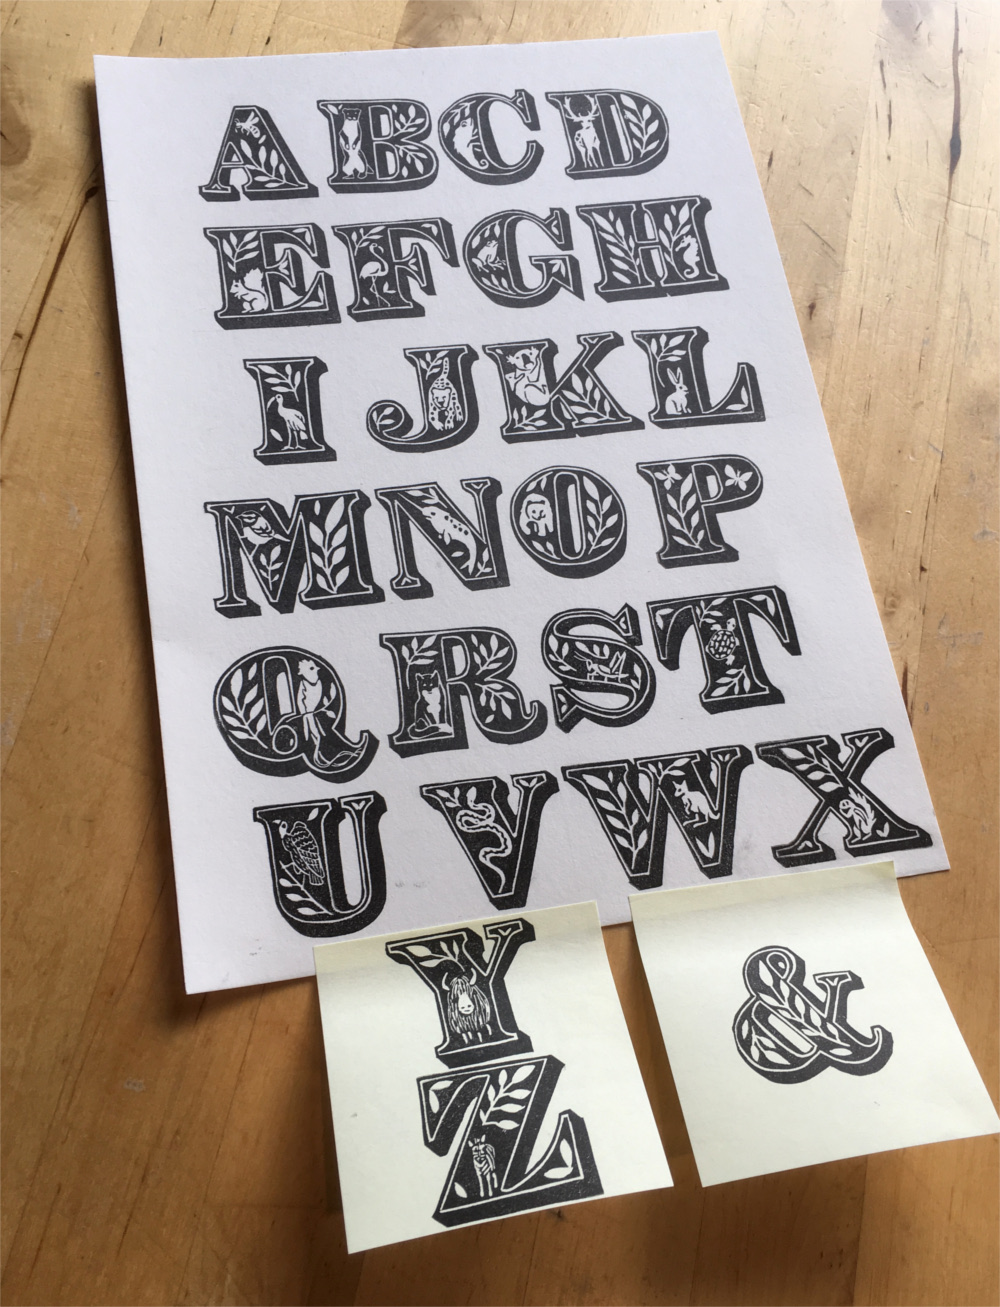 ABCD
EFGH
IJKL
MNOP
QRST
UVWX
Y &
Z